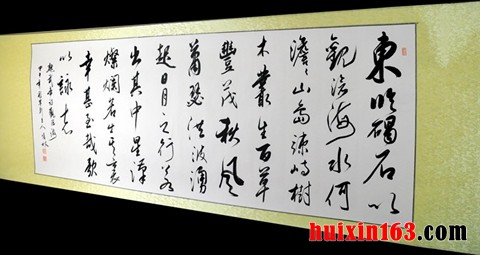 東臨碣石以
觀滄海水何
澹澹山島竦峙樹
木叢生百草
豐茂秋風
蕭瑟洪波湧
起日月之行若
出其中星漢
燦爛若出其裏
幸甚至哉歌
以詠志
huixin163.com